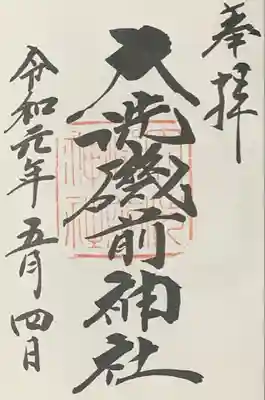 奉拝
大洗磯前神社
令和元年五月四日